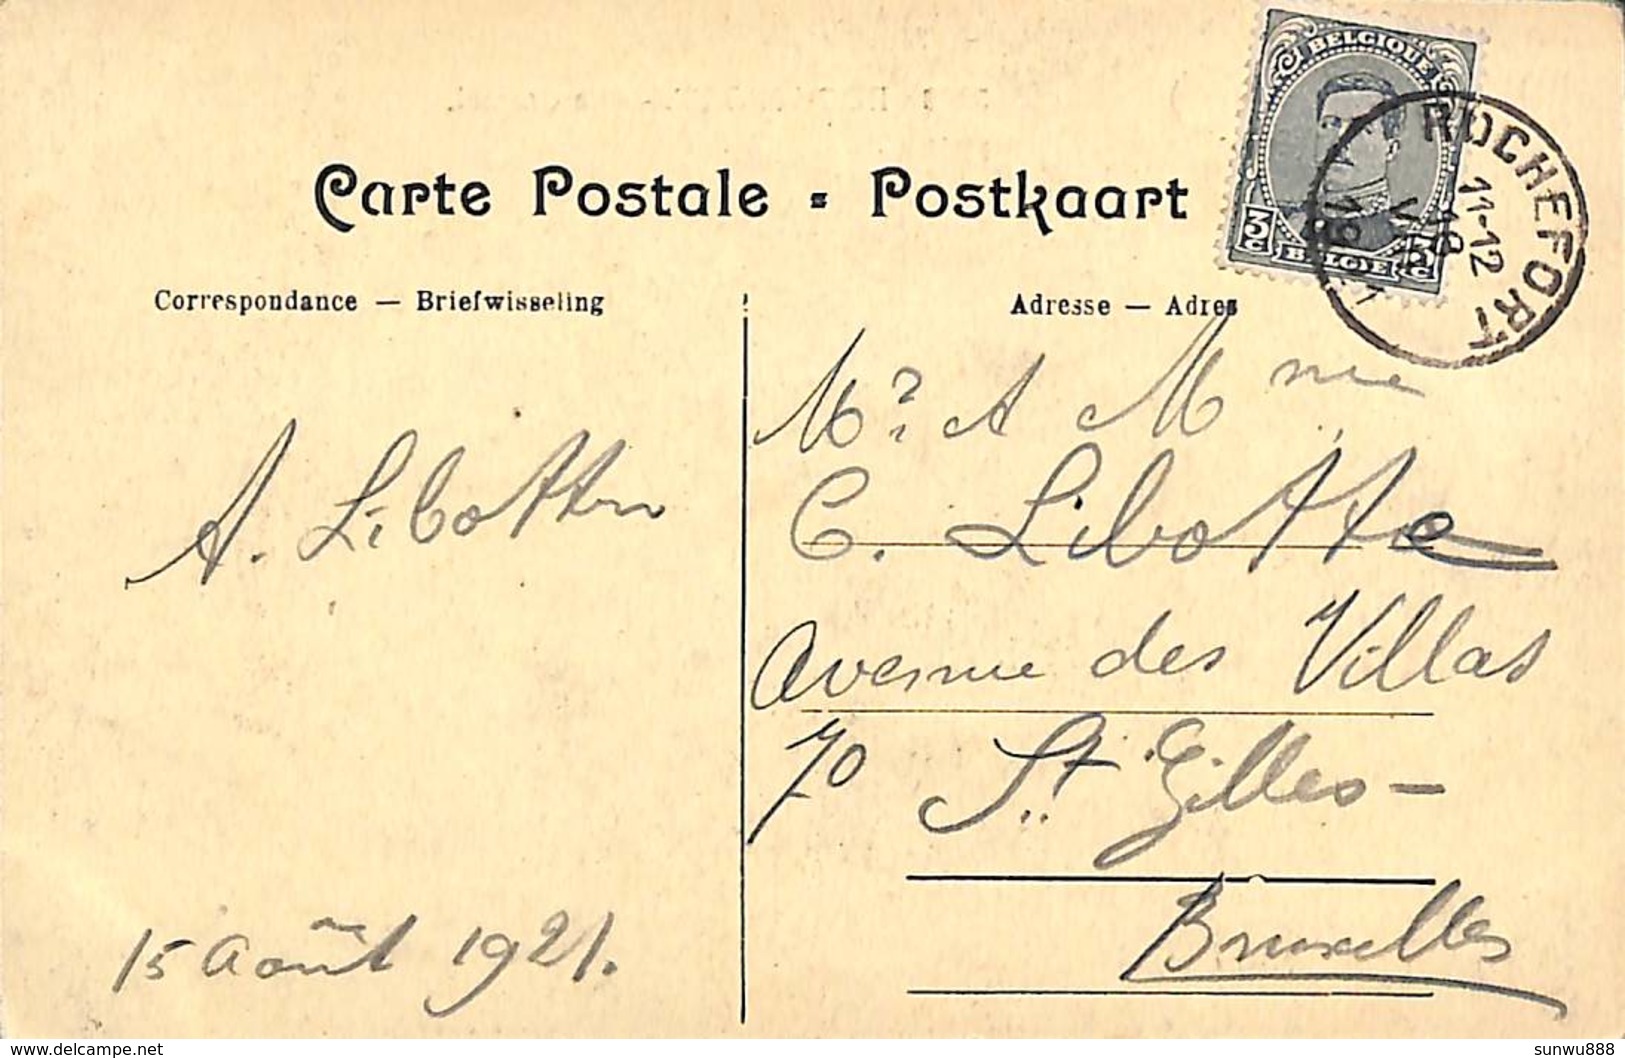 Carte Postale - Postkaart
Correspondance — Briefwisseling
Adresse — Adres
BELGIQUE
3c
BELGIE
ROCHEFORT
11-12
18
19
Mr & Mme
C. Libotte
Avenue des Villas
70 St. Gilles -
Bruxelles
A. Libotte
15 Août 1921.
delcampe.net
sunwu888